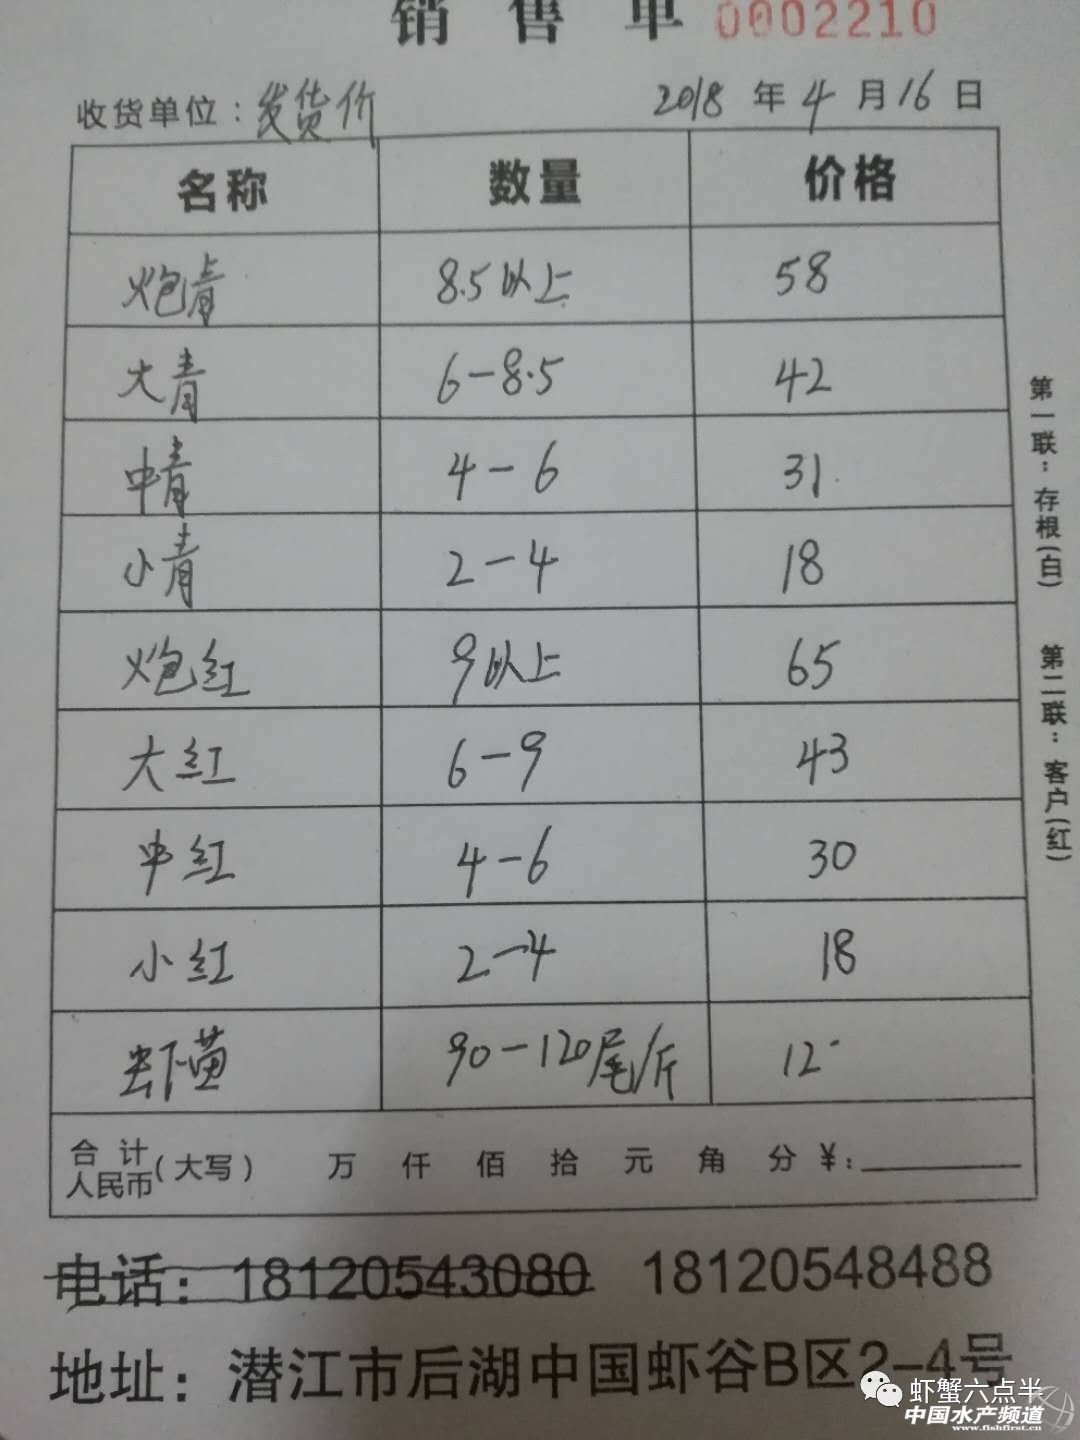 销售单 0002210
收货单位：发货价 2018年4月16日
名称 数量 价格
炮青 8.5以上 58
大青 6-8.5 42
中青 4-6 31
小青 2-4 18
炮红 9以上 65
大红 6-9 43
中红 4-6 30
小红 2-4 18
虾黄 90-120尾/斤 12
合计
人民币(大写) 万 仟 佰 拾 元 角 分 ¥:
第一联：存根(白) 第二联：客户(红)
电话：18120543080 18120548488
地址：潜江市后湖中国虾谷B区2-4号
虾蟹六点半
中国水产频道
www.fishfirst.cn